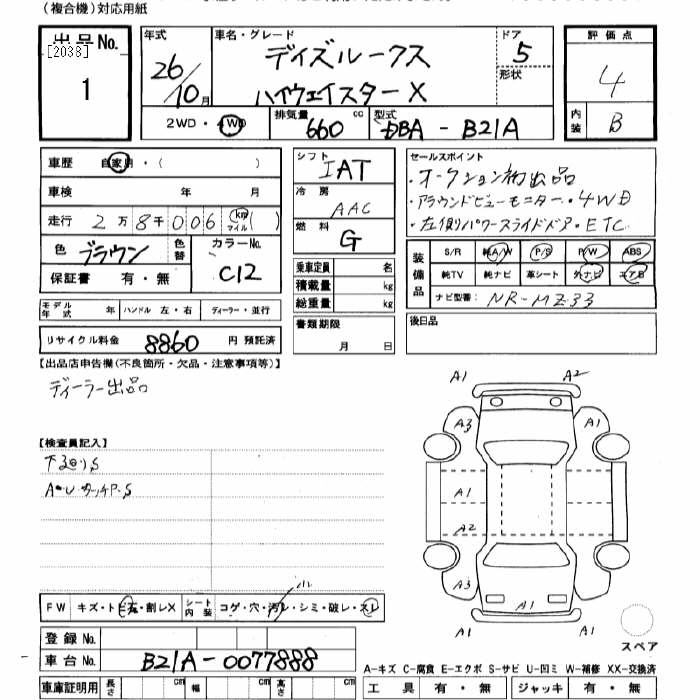 (複合機)対応用紙
出品No.
[2033]
1
年式
26/10月
車名・グレード
デイズルークス
ハイウェイスターX
ドア
5
形状
評価点
4
内装
B
2WD・4WD
排気量
660 cc
型式
DBA - B21A
車歴 自家用・( )
車検 年 月
走行 2万8千006 km マイル ( )
色 ブラウン
色替
カラーNo.
C12
保証書 有・無
シフト
IAT
冷房
AAC
燃料
G
セールスポイント
・オークション初出品
・アラウンドビューモニター・4WD
・左側パワースライドドア・ETC
乗車定員 名
積載量 kg
総重量 kg
装備品
S/R 純A/W P/S P/W ABS
純TV 純ナビ 革シート 外ナビ エアB
ナビ型番: NR-MZ33
モデル年式 年 ハンドル 左・右 ディーラー・並行
書類期限
月 日
後日品
リサイクル料金 8860 円 預託済
【出品店申告欄(不良箇所・欠品・注意事項等)】
ディーラー出品
【検査員記入】
下廻りS
A・UタッチP・S
A1 A2
A3 A1
A1
A2
A3 A1
A1
A1 A1
スペア
FW キズ・トビ石・割レX
シート内装 コゲ・穴・汚レ・シミ・破レ・スレ
小
登録No.
車台No. B21A-0077888
車庫証明用 長さ cm 幅 cm 高さ cm
A-キズ C-腐食 E-エクボ S-サビ U-凹ミ W-補修 XX-交換済
工具 有・無 ジャッキ 有・無